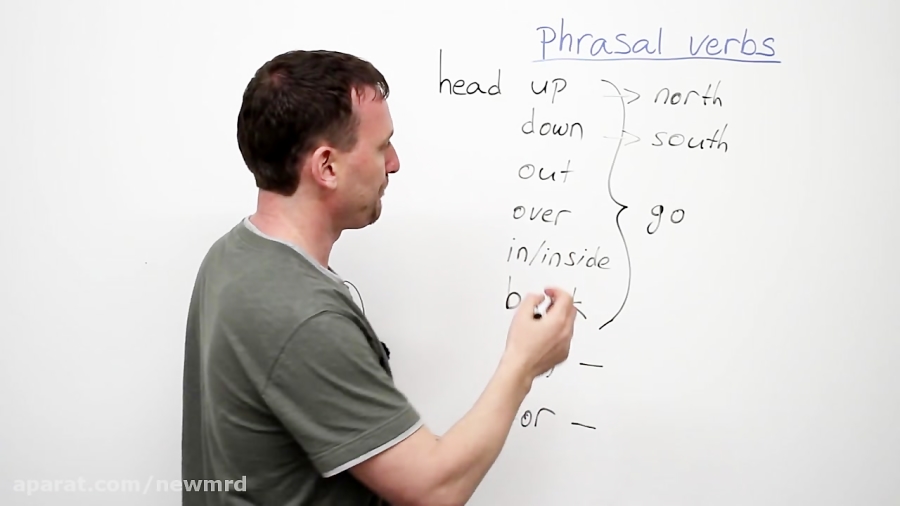 phrasal verbs
head up → north
down → south
out
over
in/inside
go
—
or —
aparat.com/newmrd